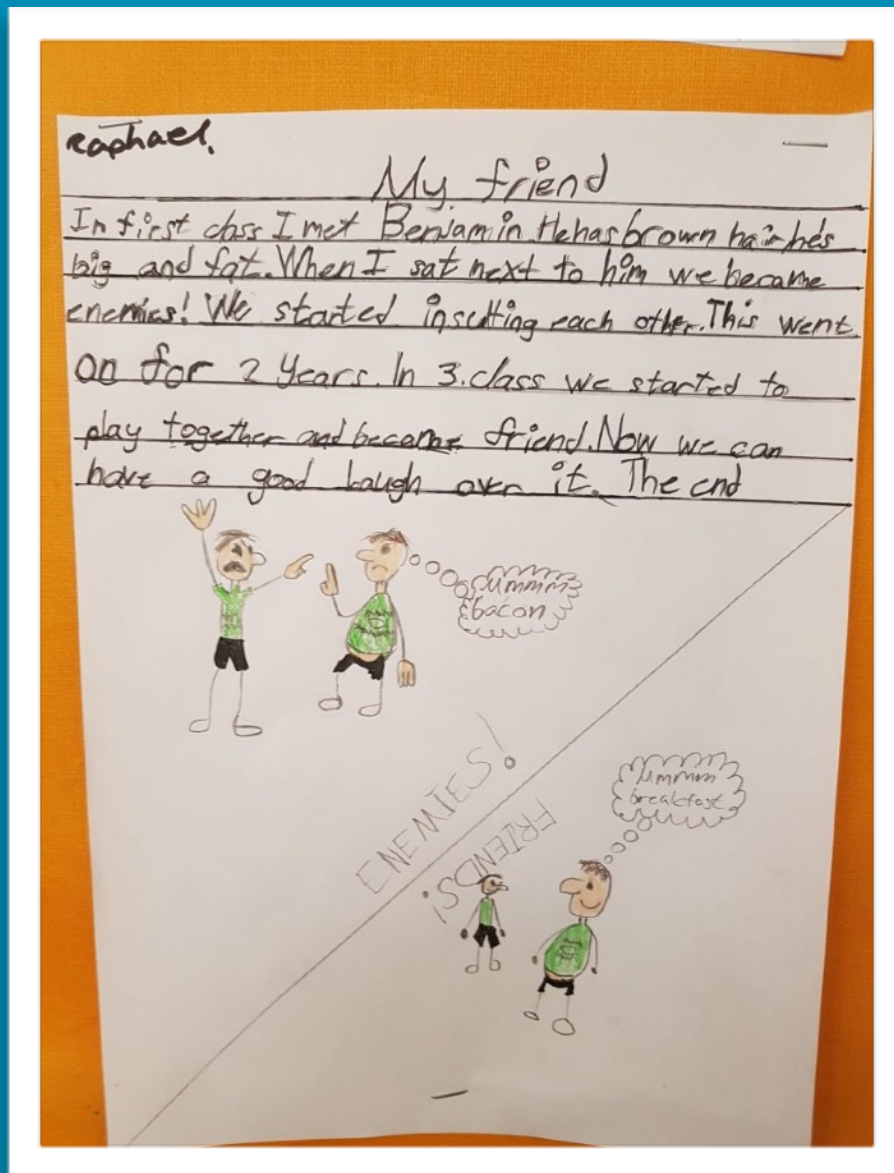 Raphael.
My friend
In first class I met Benjamin. He has brown hair he's
big and fat. When I sat next to him we became
enemies! We started insulting each other. This went
on for 2 years. In 3. class we started to
play together and became friend. Now we can
have a good laugh over it. The end
ummmm
bacon
ENEMIES!
FRIENDS!
ummmm
breakfast